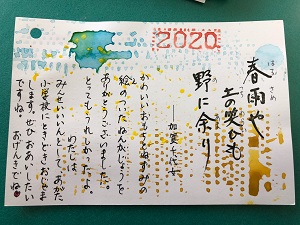 2020
春雨や
はる さめ
土の笑ひも
野に余り
──加賀千代女
かわいいおもちとねずみの
絵のついたねんがじょうを
ありがとうございました。
とってもうれしかったよ。
わたしは、
みんせいいいんとして、あがた
小学校にときどきおじゃま
します。ぜひおあいしたい
ですね。おげんきでね。